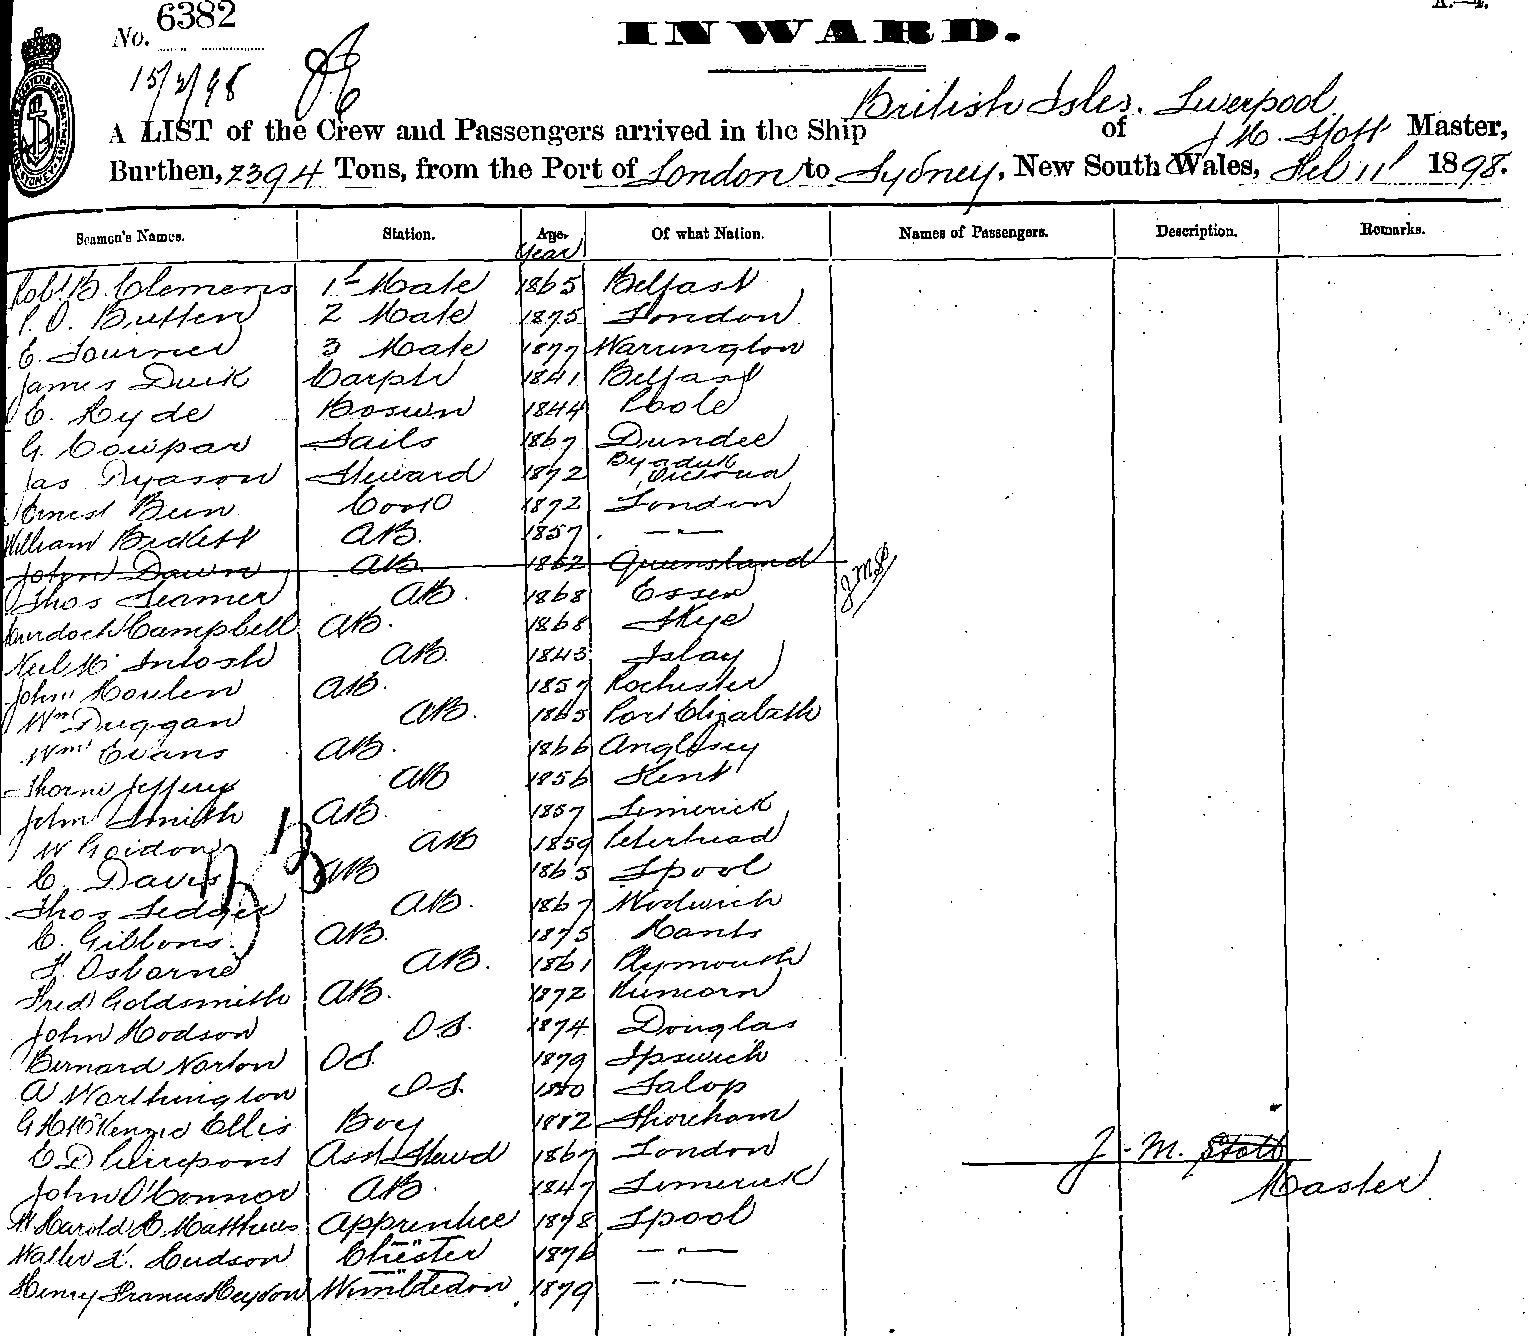 No. 6382
15/2/98
INWARD.
British Isles. Liverpool
A LIST of the Crew and Passengers arrived in the Ship of J M. Stott Master,
Burthen, 2394 Tons, from the Port of London to Sydney, New South Wales, Feb 11 1898.
Seamen's Names. Station. Age. Of what Nation. Names of Passengers. Description. Remarks.
Year
Robt. B. Clemens 1st Mate 1865 Belfast
P. O. Button 2 Mate 1875 London
E. 3 Mate 1877 Warrington
James Duik Carptr 1841 Belfast
C. Hyde Bosun 1844 Poole
G. Cowpar Sails 1867 Dundee
Jas Dyason Steward 1872 Byaduk Victoria
Ernest Bun Cook 1872 London
William Beckett AB. 1857 — " —
John Dawn AB. 1862 Queensland J.M.S
Thos Seamer AB. 1868 Essex
Murdoch Campbell AB. 1868 Skye
Neil Mc Intosh AB. 1843 Islay
John Houlen AB. 1857 Rochester
Wm Duggan AB. 1865 Port Elizabeth
Wm Evans AB. 1866 Anglesey
Thorne Jeffery AB 1856 Kent
John Smith AB. 1857 Limerick
W Gordon AB 1859 Peterhead
C. Davis AB 1865 Lpool
Thos Ledger AB. 1867 Woolwich
C. Gibbons AB. 1875 Hants
F. Osborne AB. 1861 Plymouth
Fred Goldsmith AB. 1872 Runcorn
John Hodson OS. 1874 Douglas
Bernard Norton OS. 1879 Ipswich
A Worthington OS. 1880 Salop
G H McKenzie Ellis Boy 1882 Shoreham
C D Asst Stewd 1867 London
J. M. Stott
Master
John O'Connor AB. 1847 Limerick
W Harold C. Matthews Apprentice 1878 Lpool
Walter L. Hudson Chester 1876 — " —
Henry Francis Heydon Wimbledon 1879 — " —